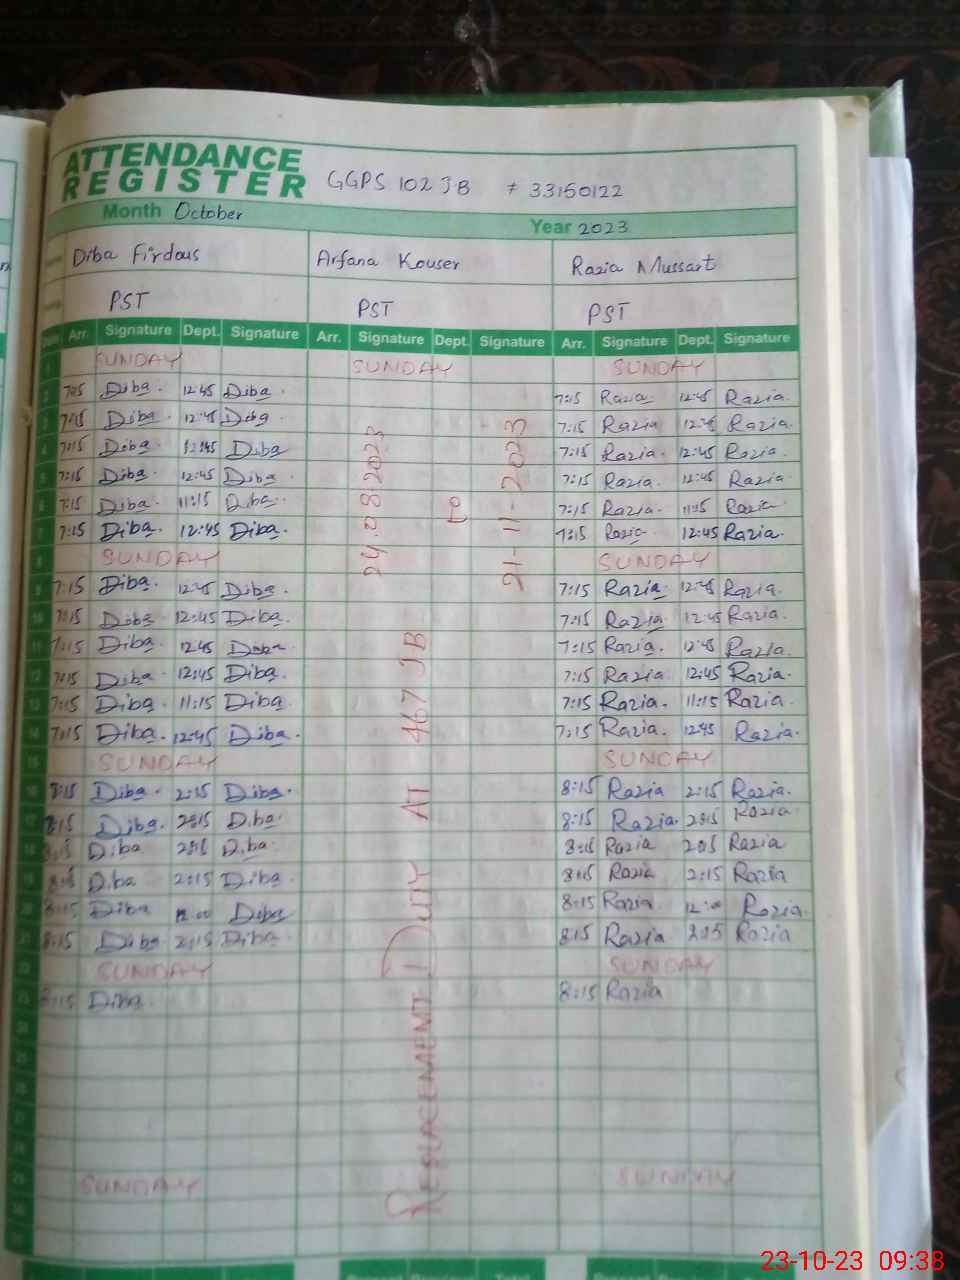 ATTENDANCE
REGISTER GGPS 102 JB # 33150122
Month October
Year 2023
Diba Firdous Arfana Kouser Razia Mussart
PST PST PST
Arr. Signature Dept. Signature Arr. Signature Dept. Signature Arr. Signature Dept. Signature
1 SUNDAY SUNDAY SUNDAY
2 7:15 Diba. 12:45 Diba. 7:15 Razia 12:45 Razia.
3 7:15 Diba. 12:45 Diba 7:15 Razia 12:45 Razia.
4 7:15 Diba. 12:45 Diba 7:15 Razia. 12:45 Razia.
5 7:15 Diba. 12:45 Diba. 7:15 Razia. 12:45 Razia.
6 7:15 Diba. 11:15 Diba. 7:15 Razia. 11:15 Razia.
7:15 Diba. 12:45 Diba. 7:15 Razia 12:45 Razia.
8 SUNDAY SUNDAY
9 7:15 Diba. 12:45 Diba. 7:15 Razia. 12:45 Razia.
10 7:15 Diba. 12:45 Diba. 7:15 Razia. 12:45 Razia.
11 7:15 Diba. 12:45 Diba. 7:15 Razia. 12:45 Razia.
12 7:15 Diba. 12:45 Diba. 7:15 Razia. 12:45 Razia.
13 7:15 Diba. 11:15 Diba. 7:15 Razia. 11:15 Razia.
14 7:15 Diba. 12:45 Diba. 7:15 Razia. 12:45 Razia.
15 SUNDAY SUNDAY
16 8:15 Diba. 2:15 Diba. 8:15 Razia 2:15 Razia.
17 8:15 Diba. 2:15 Diba. 8:15 Razia. 2:15 Razia.
18 8:15 Diba 2:15 Diba. 8:15 Razia 2:15 Razia
19 8:15 Diba 2:15 Diba. 8:15 Razia 2:15 Razia
20 8:15 Diba 12:00 Diba 8:15 Razia. 12:00 Razia.
21 8:15 Diba. 2:15 Diba. 8:15 Razia 2:15 Razia
22 SUNDAY SUNDAY
23 8:15 Diba. 8:15 Razia
24
25
26
27
28
29 SUNDAY SUNDAY
30
REPLACEMEMT DUTY AT 467 JB
24.08.2023
To
21-11-2023
Total
23-10-23 09:38